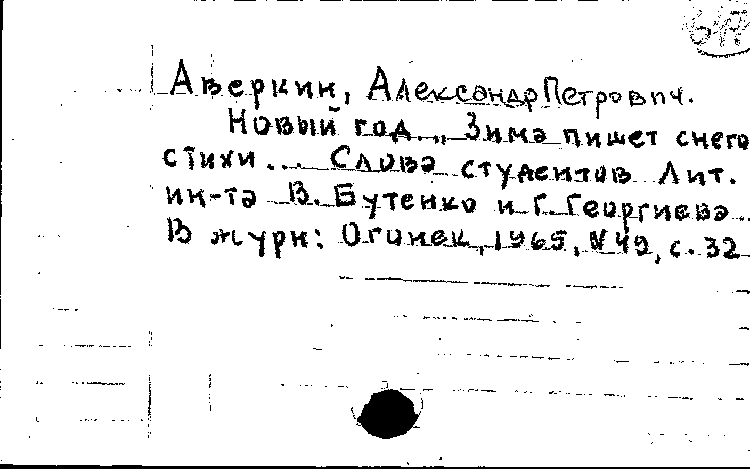 Аверкин, Александр Петрович.
Новый год. „Зима пишет снегом
стихи... Слова студентов Лит.
ин-та В. Бутенко и Г. Георгиева.
В журн: Огонек, 1965, № 49, с. 32